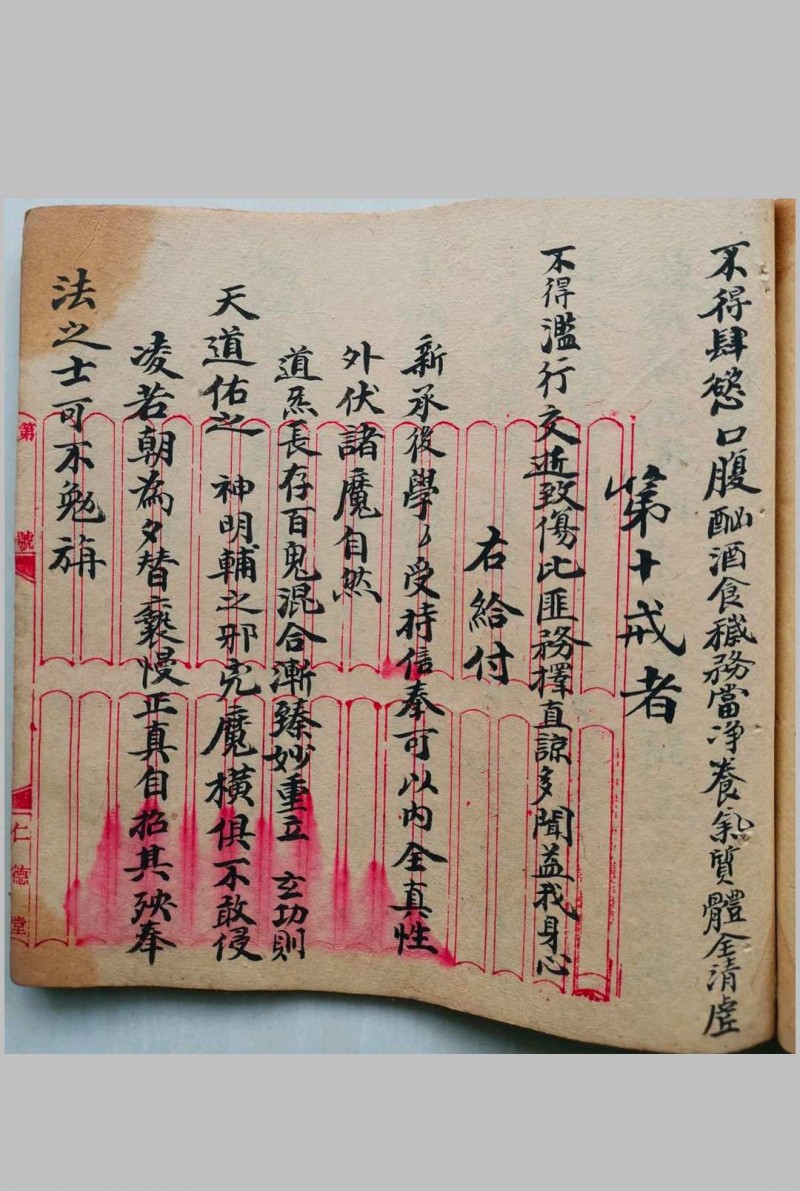 不得肆慾口腹酗酒食穢務當净養氣質體全清虛
第十戒者
不得濫行交遊致傷比匪務擇直諒多聞益我身心
右給付
新承後學〻受持信奉可以内全真性
外伏諸魔自然
道炁長存百鬼混合漸臻妙重立 玄功則
天道佑之 神明輔之邪兇魔橫俱不敢侵
凌若朝為夕替褻慢正真自招其殃奉
法之士可不勉旃
第 號
仁德堂